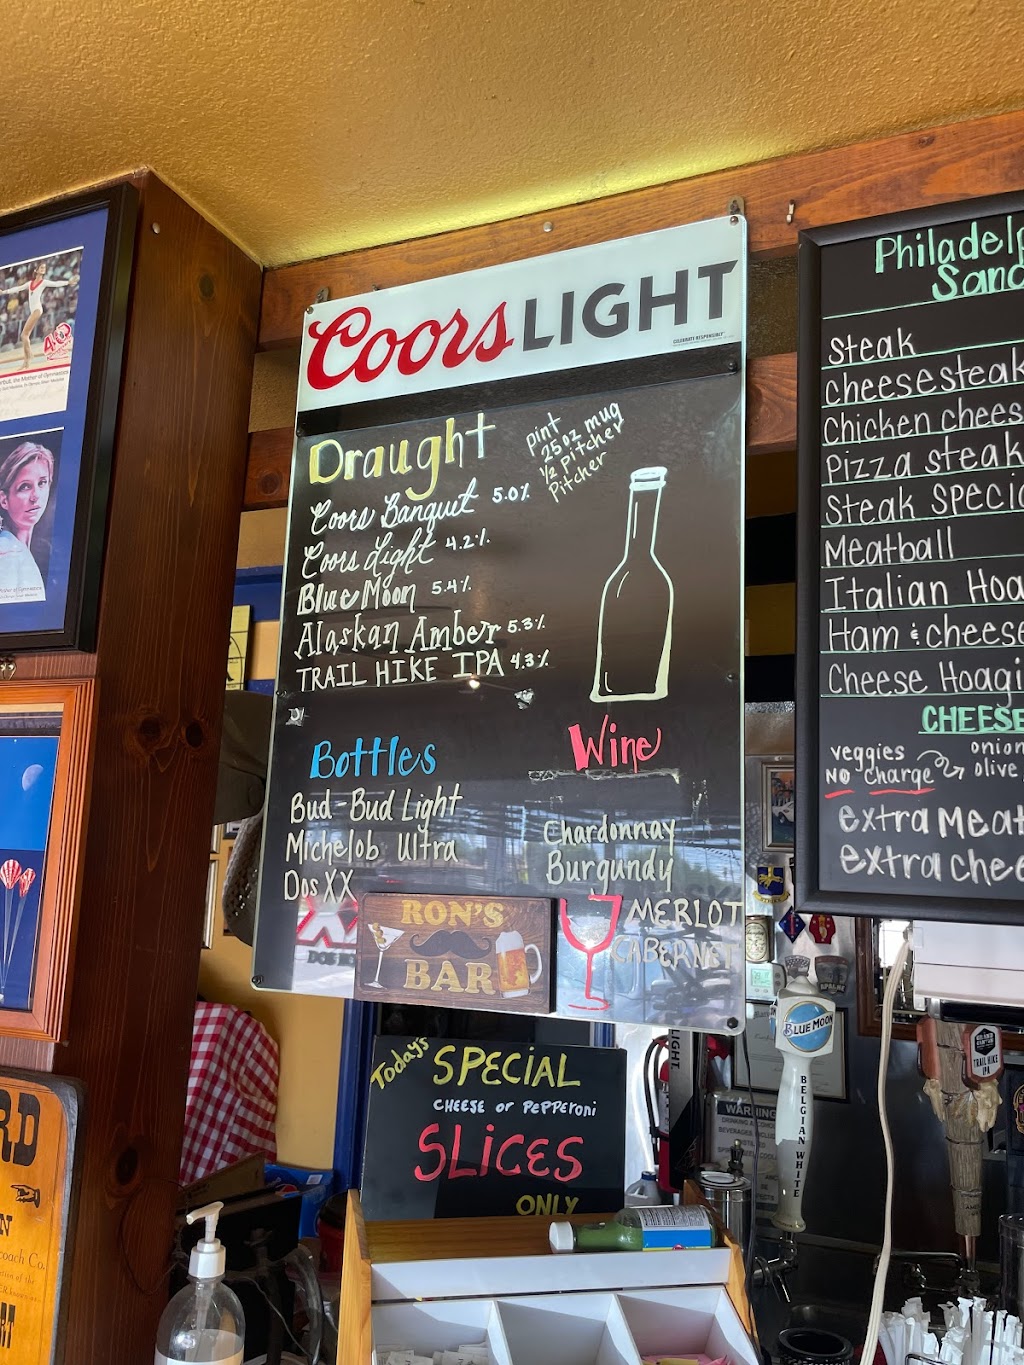 Coors LIGHT
CELEBRATE RESPONSIBLY
Draught
pint
25oz mug
½ Pitcher
Pitcher
Coors Banquit 5.0%
Coors Light 4.2%
Blue Moon 5.4%
Alaskan Amber 5.3%
TRAIL HIKE IPA 4.3%
Bottles
Bud - Bud Light
Michelob Ultra
Dos XX
Wine
Chardonnay
Burgundy
MERLOT
CABERNET
RON'S
BAR
Today's
SPECIAL
CHEESE or PEPPERONI
SLICES
ONLY
Philadelp
Sand
Steak
cheesesteak
Chicken chees
Pizza steak
Steak Specia
Meatball
Italian Hoa
Ham & cheese
Cheese Hoagi
CHEESE
veggies
NO charge
onion
olive
extra Meat
extra chee
BLUE MOON
BELGIAN WHITE
TRAIL HIKE
IPA
LIGHT
WARNING
RD
coach Co.